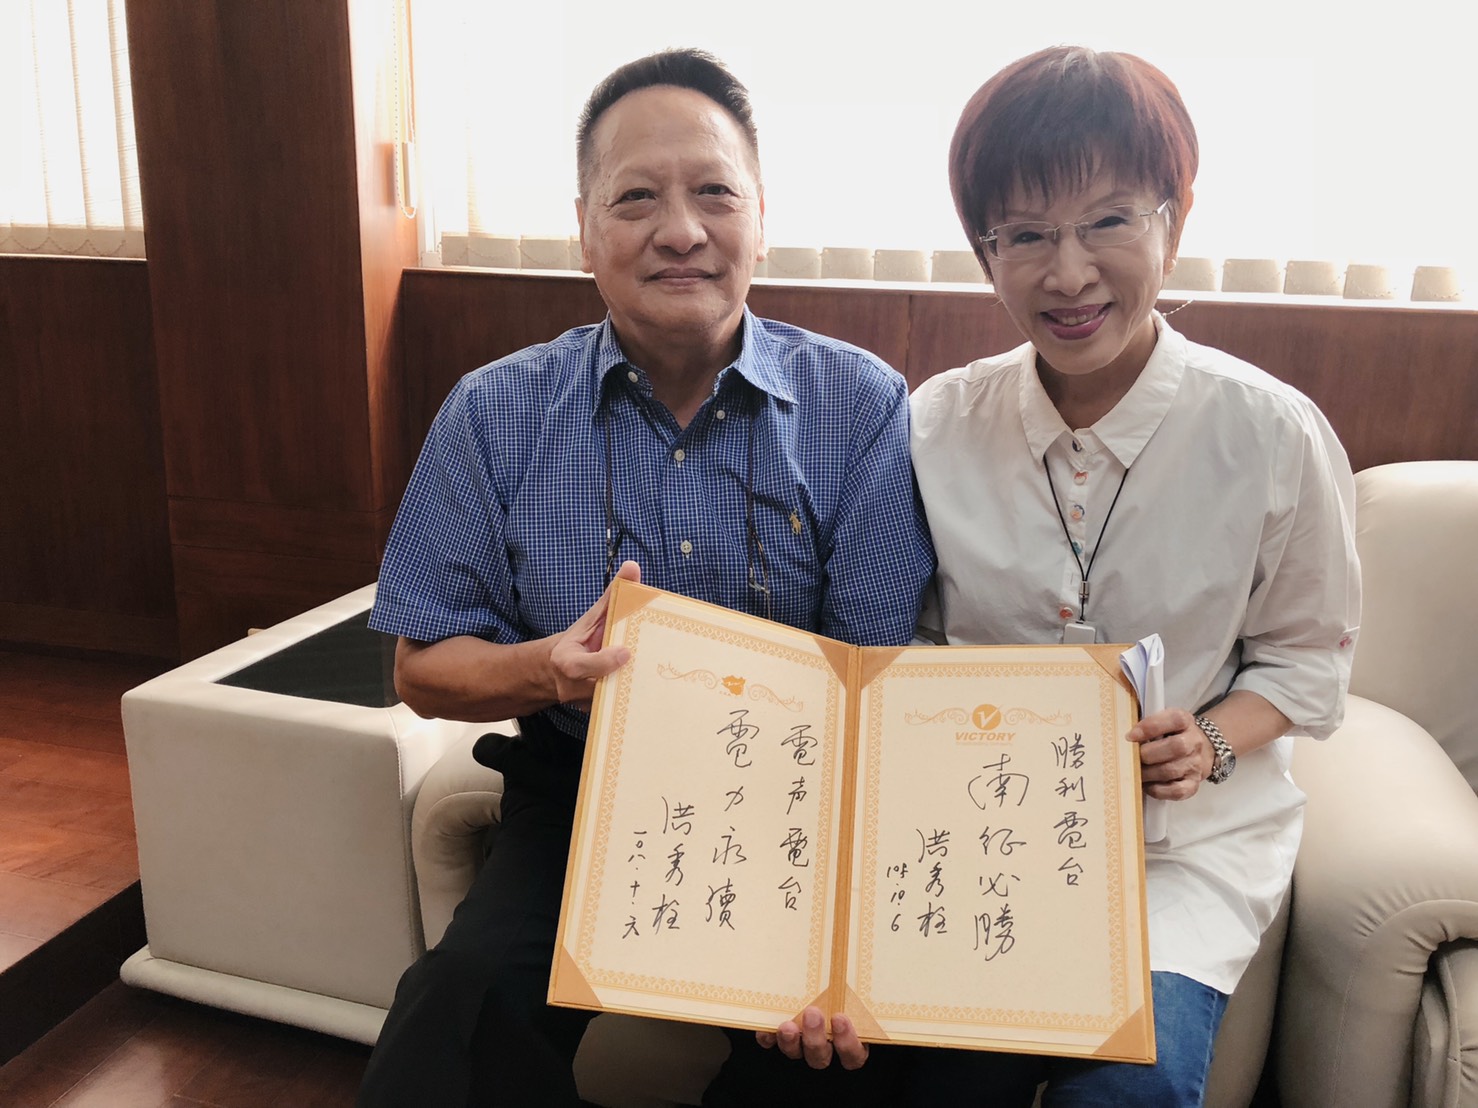 勝利電台
南征必勝
洪秀柱
105.10.6
VICTORY
電声電台
電力永續
洪秀柱
一〇八.十.六